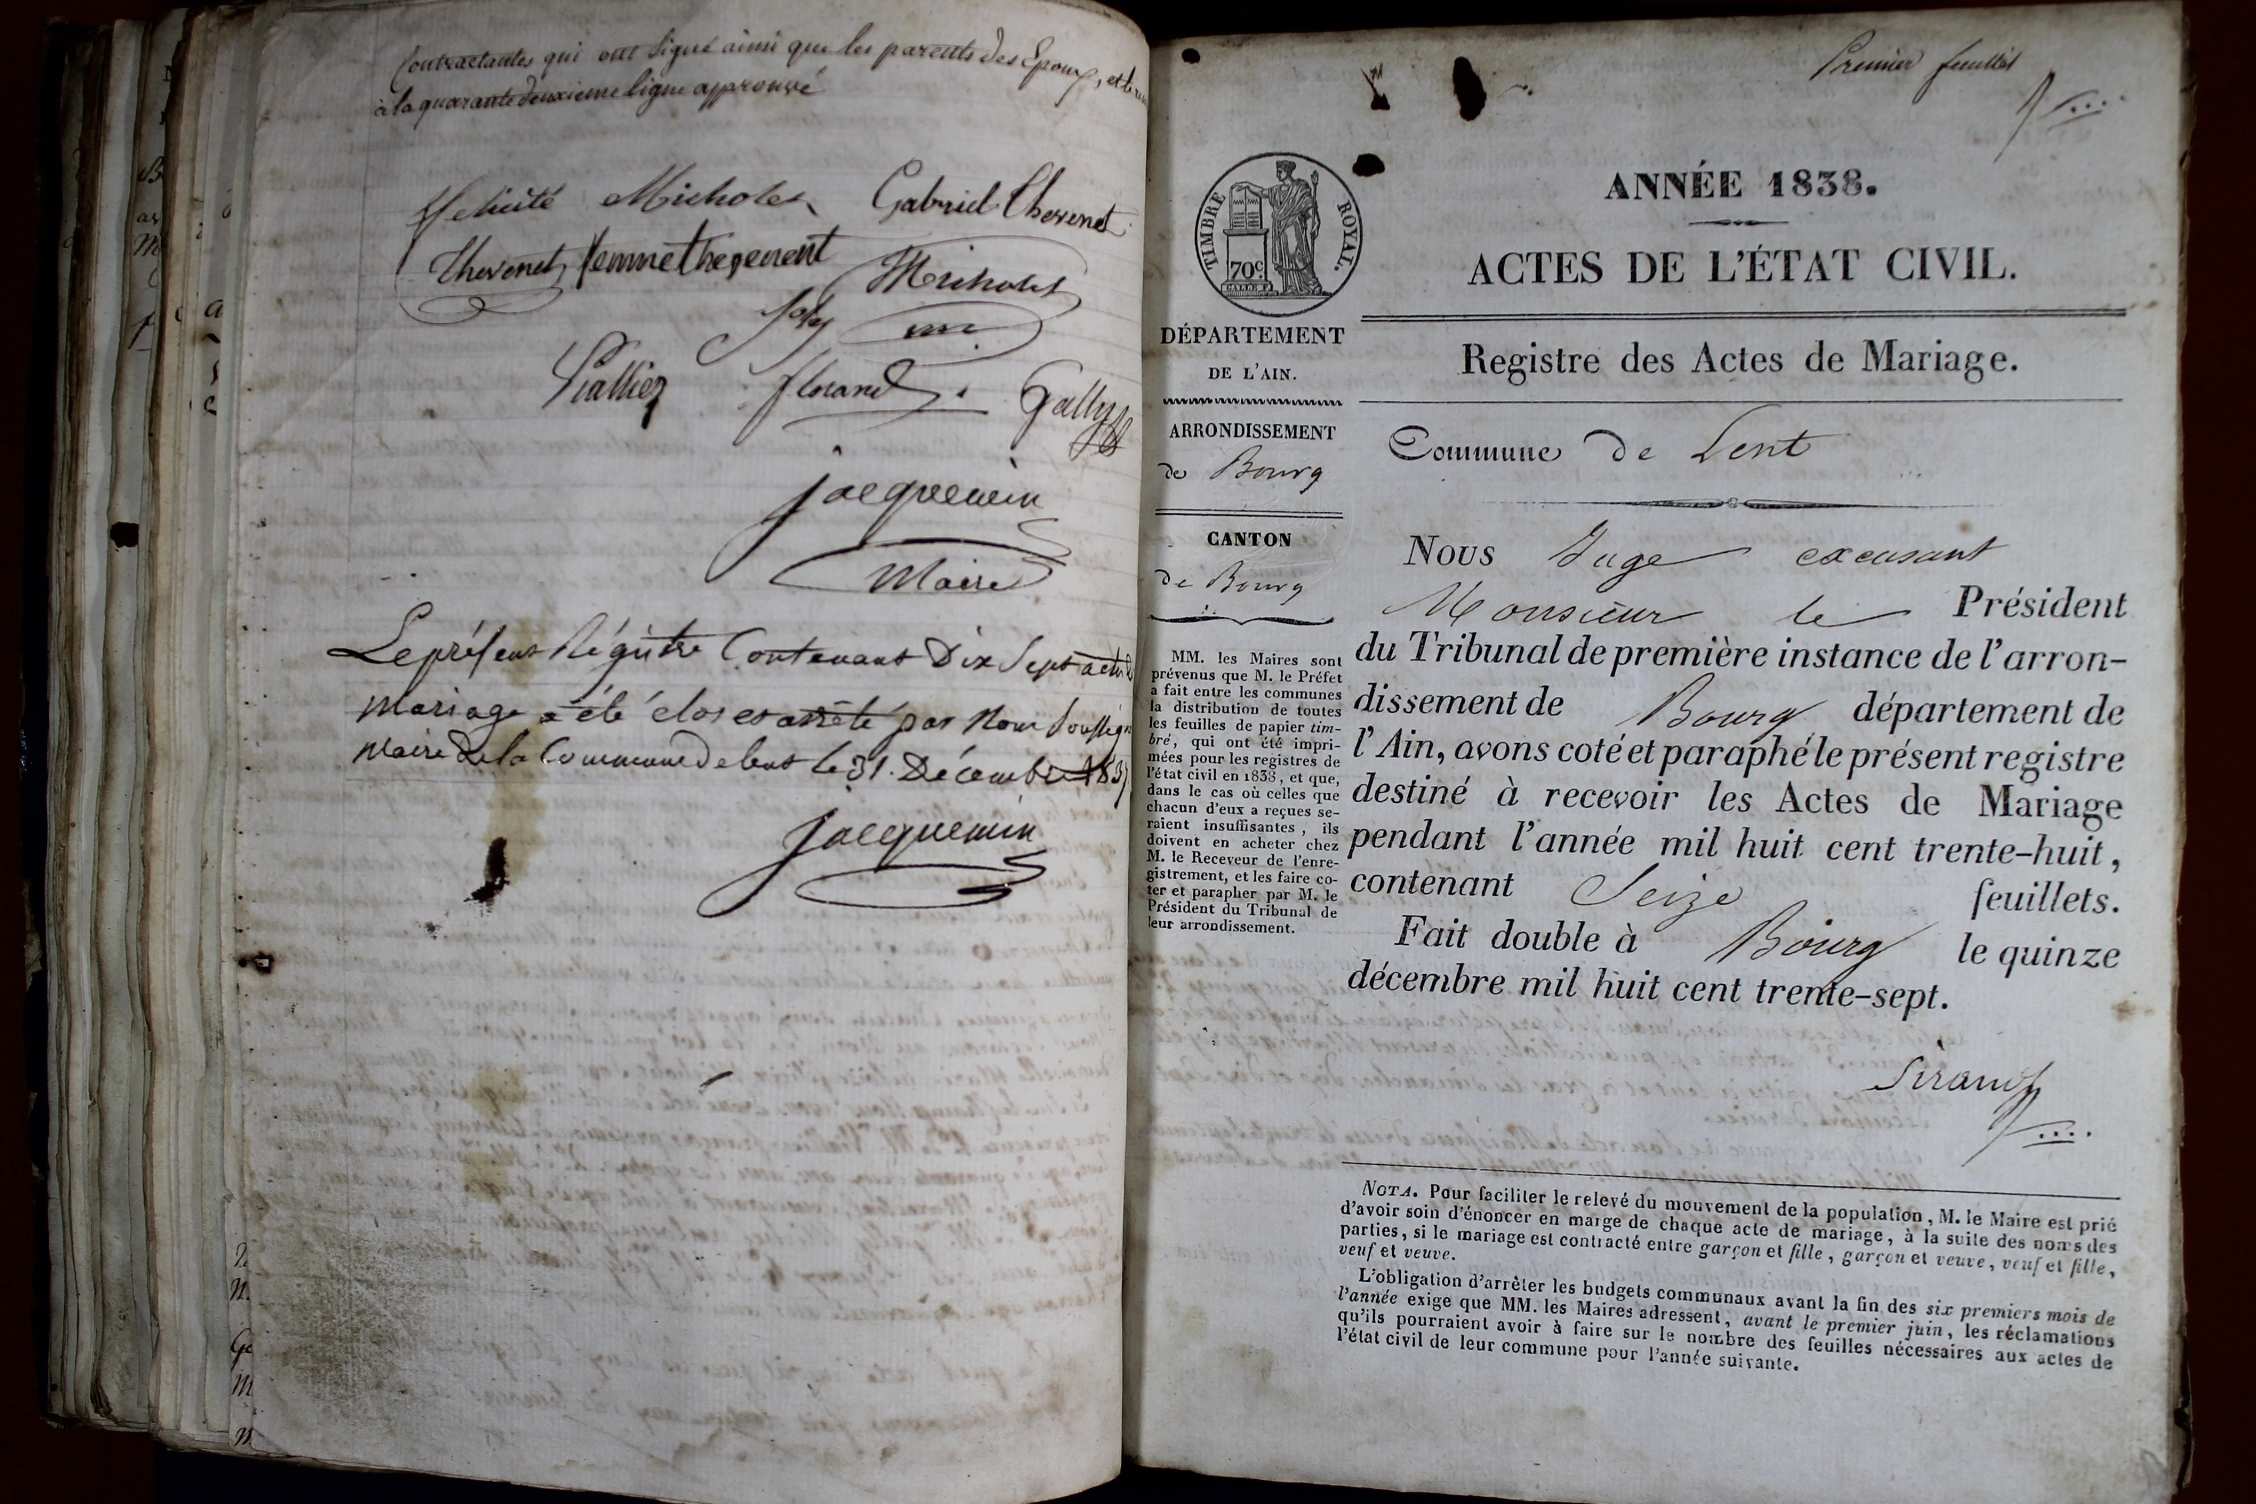 Contractantes qui ont signé ainsi que les parents des Epoux, et le
à la quarante deuxieme ligne approuvé
Felicité Micholet Gabriel Thevenet
Thevenet femme thevenent Micholet
Joly
Viallier florand Gally
jacquemin
Maire
Le présent Régistre Contenant Dix Sept actes
mariage a été clos et arrêté par Nous Soussigné
Maire de la Commune de lent le 31. Décembre 1837
jacquemin
Premier feuillet
TIMBRE ROYAL.
70c
ANNÉE 1838.
ACTES DE L'ÉTAT CIVIL.
Registre des Actes de Mariage.
DÉPARTEMENT
DE L'AIN.
ARRONDISSEMENT
de Bourg
CANTON
de Bourg
MM. les Maires sont
prévenus que M. le Préfet
a fait entre les communes
la distribution de toutes
les feuilles de papier tim-
bré, qui ont été impri-
mées pour les registres de
l'état civil en 1838, et que,
dans le cas où celles que
chacun d'eux a reçues se-
raient insuffisantes, ils
doivent en acheter chez
M. le Receveur de l'enre-
gistrement, et les faire co-
ter et parapher par M. le
Président du Tribunal de
leur arrondissement.
Commune de Lent
Nous Juge excusant
Monsieur le Président
du Tribunal de première instance de l'arron-
dissement de Bourg département de
l'Ain, avons coté et paraphé le présent registre
destiné à recevoir les Actes de Mariage
pendant l'année mil huit cent trente-huit,
contenant Seize feuillets.
Fait double à Bourg le quinze
décembre mil huit cent trente-sept.
Sirand
NOTA. Pour faciliter le relevé du mouvement de la population, M. le Maire est prié
d'avoir soin d'énoncer en marge de chaque acte de mariage, à la suite des noms des
parties, si le mariage est contracté entre garçon et fille, garçon et veuve, veuf et fille,
veuf et veuve.
L'obligation d'arrêter les budgets communaux avant la fin des six premiers mois de
l'année exige que MM. les Maires adressent, avant le premier juin, les réclamations
qu'ils pourraient avoir à faire sur le nombre des feuilles nécessaires aux actes de
l'état civil de leur commune pour l'année suivante.